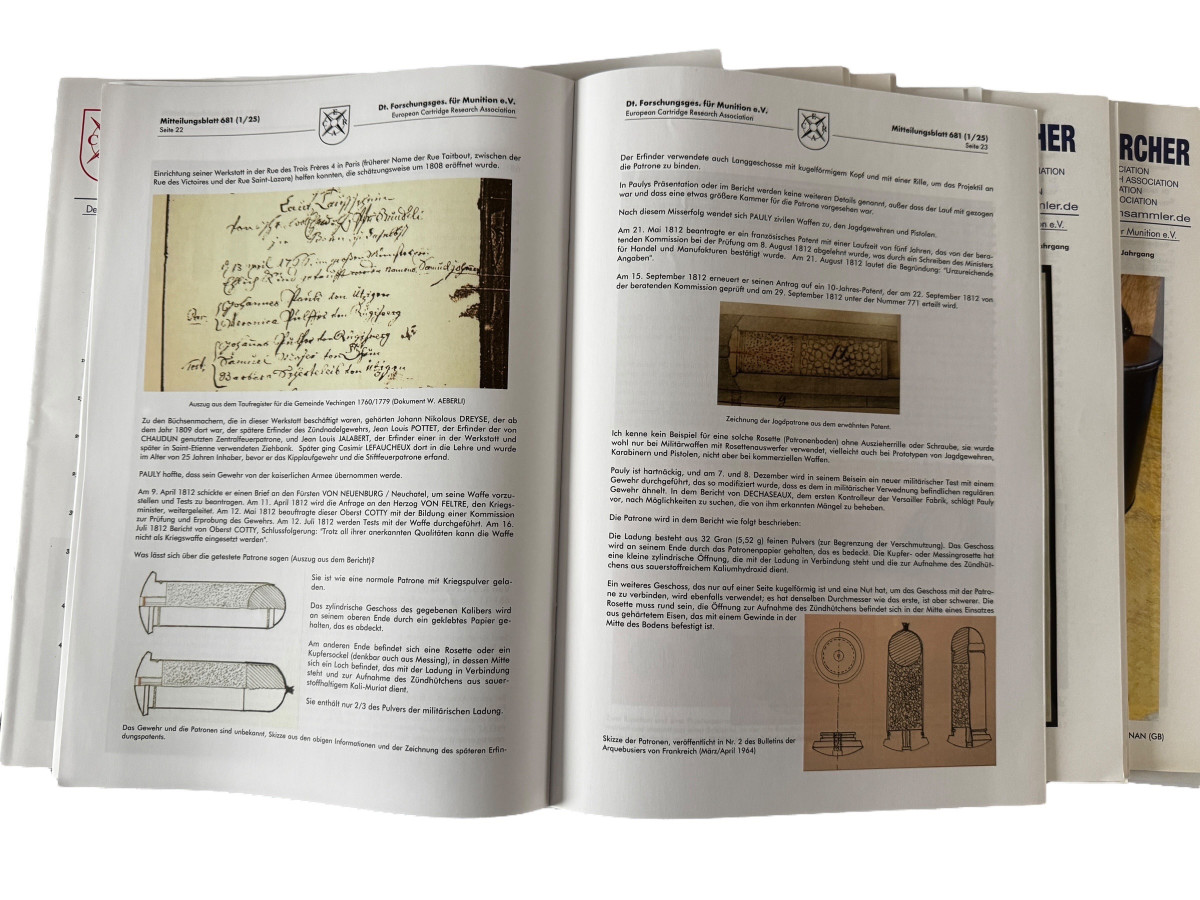 Mitteilungsblatt 681 (1/25)
Seite 22
Dt. Forschungsges. für Munition e.V.
European Cartridge Research Association
Einrichtung seiner Werkstatt in der Rue des Trois Frères 4 in Paris (früherer Name der Rue Taitbout, zwischen der
Rue des Victoires und der Rue Saint-Lazare) helfen konnten, die schätzungsweise um 1808 eröffnet wurde.
Auszug aus dem Taufregister für die Gemeinde Vechingen 1760/1779 (Dokument W. AEBERLI)
Zu den Büchsenmachern, die in dieser Werkstatt beschäftigt waren, gehörten Johann Nikolaus DREYSE, der ab
dem Jahr 1809 dort war, der spätere Erfinder des Zündnadelgewehrs, Jean Louis POTTET, der Erfinder der von
CHAUDUN genutzten Zentralfeuerpatrone, und Jean Louis JALABERT, der Erfinder einer in der Werkstatt und
später in Saint-Etienne verwendeten Ziehbank. Später ging Casimir LEFAUCHEUX dort in die Lehre und wurde
im Alter von 25 Jahren Inhaber, bevor er das Kipplaufgewehr und die Stiftfeuerpatrone erfand.
PAULY hoffte, dass sein Gewehr von der kaiserlichen Armee übernommen werde.
Am 9. April 1812 schickte er einen Brief an den Fürsten VON NEUENBURG / Neuchatel, um seine Waffe vorzu-
stellen und Tests zu beantragen. Am 11. April 1812 wird die Anfrage an den Herzog VON FELTRE, den Kriegs-
minister, weitergeleitet. Am 12. Mai 1812 beauftragte dieser Oberst COTTY mit der Bildung einer Kommission
zur Prüfung und Erprobung des Gewehrs. Am 12. Juli 1812 werden Tests mit der Waffe durchgeführt. Am 16.
Juli 1812 Bericht von Oberst COTTY, Schlussfolgerung: "Trotz all ihrer anerkannten Qualitäten kann die Waffe
nicht als Kriegswaffe eingesetzt werden".
Was lässt sich über die getestete Patrone sagen (Auszug aus dem Bericht)?
Sie ist wie eine normale Patrone mit Kriegspulver gela-
den.
Das zylindrische Geschoss des gegebenen Kalibers wird
an seinem oberen Ende durch ein geklebtes Papier ge-
halten, das es abdeckt.
Am anderen Ende befindet sich eine Rosette oder ein
Kupfersockel (denkbar auch aus Messing), in dessen Mitte
sich ein Loch befindet, das mit der Ladung in Verbindung
steht und zur Aufnahme des Zündhütchens aus sauer-
stoffhaltigem Kali-Muriat dient.
Sie enthält nur 2/3 des Pulvers der militärischen Ladung.
Das Gewehr und die Patronen sind unbekannt, Skizze aus den obigen Informationen und der Zeichnung des späteren Erfin-
dungspatents.
Dt. Forschungsges. für Munition e.V.
European Cartridge Research Association
Mitteilungsblatt 681 (1/25)
Seite 23
Der Erfinder verwendete auch Langgeschosse mit kugelförmigem Kopf und mit einer Rille, um das Projektil an
die Patrone zu binden.
In Paulys Präsentation oder im Bericht werden keine weiteren Details genannt, außer dass der Lauf mit gezogen
war und dass eine etwas größere Kammer für die Patrone vorgesehen war.
Nach diesem Misserfolg wendet sich PAULY zivilen Waffen zu, den Jagdgewehren und Pistolen.
Am 21. Mai 1812 beantragte er ein französisches Patent mit einer Laufzeit von fünf Jahren, das von der bera-
tenden Kommission bei der Prüfung am 8. August 1812 abgelehnt wurde, was durch ein Schreiben des Ministers
für Handel und Manufakturen bestätigt wurde. Am 21. August 1812 lautet die Begründung: "Unzureichende
Angaben".
Am 15. September 1812 erneuert er seinen Antrag auf ein 10-Jahres-Patent, der am 22. September 1812 von
der beratenden Kommission geprüft und am 29. September 1812 unter der Nummer 771 erteilt wird.
Zeichnung der Jagdpatrone aus dem erwähnten Patent.
Ich kenne kein Beispiel für eine solche Rosette (Patronenboden) ohne Ausziehrille oder Schraube, sie wurde
wohl nur bei Militärwaffen mit Rosettenauswerfer verwendet, vielleicht auch bei Prototypen von Jagdgewehren,
Karabinern und Pistolen, nicht aber bei kommerziellen Waffen.
Pauly ist hartnäckig, und am 7. und 8. Dezember wird in seinem Beisein ein neuer militärischer Test mit einem
Gewehr durchgeführt, das so modifiziert wurde, dass es dem in militärischer Verwednung befindlichen regulären
Gewehr ähnelt. In dem Bericht von DECHASEAUX, dem ersten Kontrolleur der Versailler Fabrik, schlägt Pauly
vor, nach Möglichkeiten zu suchen, die von ihm erkannten Mängel zu beheben.
Die Patrone wird in dem Bericht wie folgt beschrieben:
Die Ladung besteht aus 32 Gran (5,52 g) feinen Pulvers (zur Begrenzung der Verschmutzung). Das Geschoss
wird an seinem Ende durch das Patronenpapier gehalten, das es bedeckt. Die Kupfer- oder Messingrosette hat
eine kleine zylindrische Öffnung, die mit der Ladung in Verbindung steht und die zur Aufnahme des Zündhüt-
chens aus sauerstoffreichem Kaliumhydroxid dient.
Ein weiteres Geschoss, das nur auf einer Seite kugelförmig ist und eine Nut hat, um das Geschoss mit der Patro-
ne zu verbinden, wird ebenfalls verwendet; es hat denselben Durchmesser wie das erste, ist aber schwerer. Die
Rosette muss rund sein, die Öffnung zur Aufnahme des Zündhütchens befindet sich in der Mitte eines Einsatzes
aus gehärtetem Eisen, das mit einem Gewinde in der
Mitte des Bodens befestigt ist.
Skizze der Patronen, veröffentlicht in Nr. 2 des Bulletins der
Arquebusiers von Frankreich (März/April 1964)
HER
ON
nler.de
n e.V.
ahrgang
RCHER
CIATION
H ASSOCIATION
ATION
OCIATION
nsammler.de
r Munition e.V.
Jahrgang
NAN (GB)
De